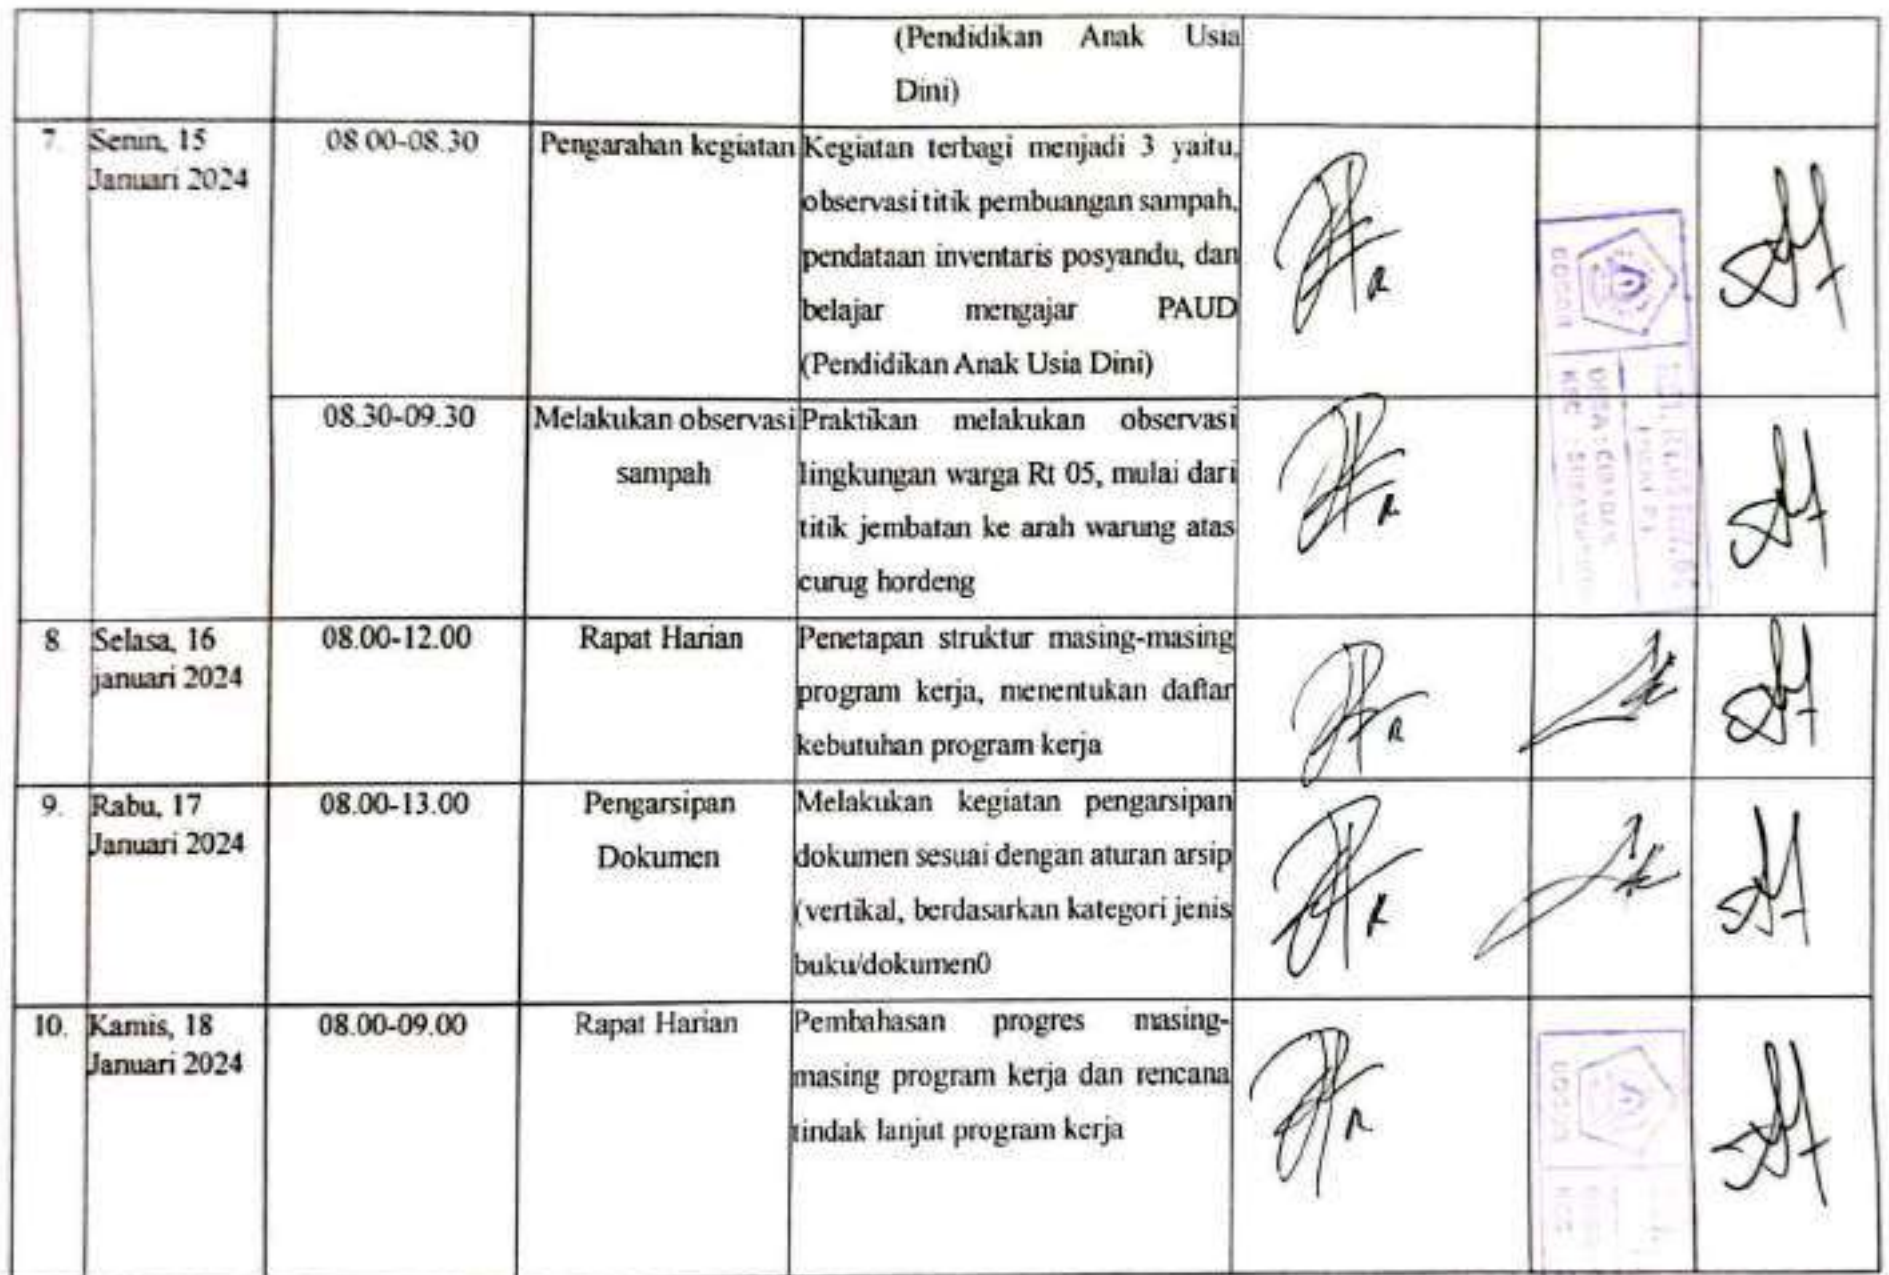 (Pendidikan Anak Usia
Dini)
7. Senin, 15
Januari 2024
08.00-08.30
Pengarahan kegiatan
Kegiatan terbagi menjadi 3 yaitu,
observasi titik pembuangan sampah,
pendataan inventaris posyandu, dan
belajar mengajar PAUD
(Pendidikan Anak Usia Dini)
08.30-09.30
Melakukan observasi
sampah
Praktikan melakukan observasi
lingkungan warga Rt 05, mulai dari
titik jembatan ke arah warung atas
curug hordeng
8. Selasa, 16
januari 2024
08.00-12.00
Rapat Harian
Penetapan struktur masing-masing
program kerja, menentukan daftar
kebutuhan program kerja
9. Rabu, 17
Januari 2024
08.00-13.00
Pengarsipan
Dokumen
Melakukan kegiatan pengarsipan
dokumen sesuai dengan aturan arsip
(vertikal, berdasarkan kategori jenis
buku/dokumen0
10. Kamis, 18
Januari 2024
08.00-09.00
Rapat Harian
Pembahasan progres masing-
masing program kerja dan rencana
tindak lanjut program kerja